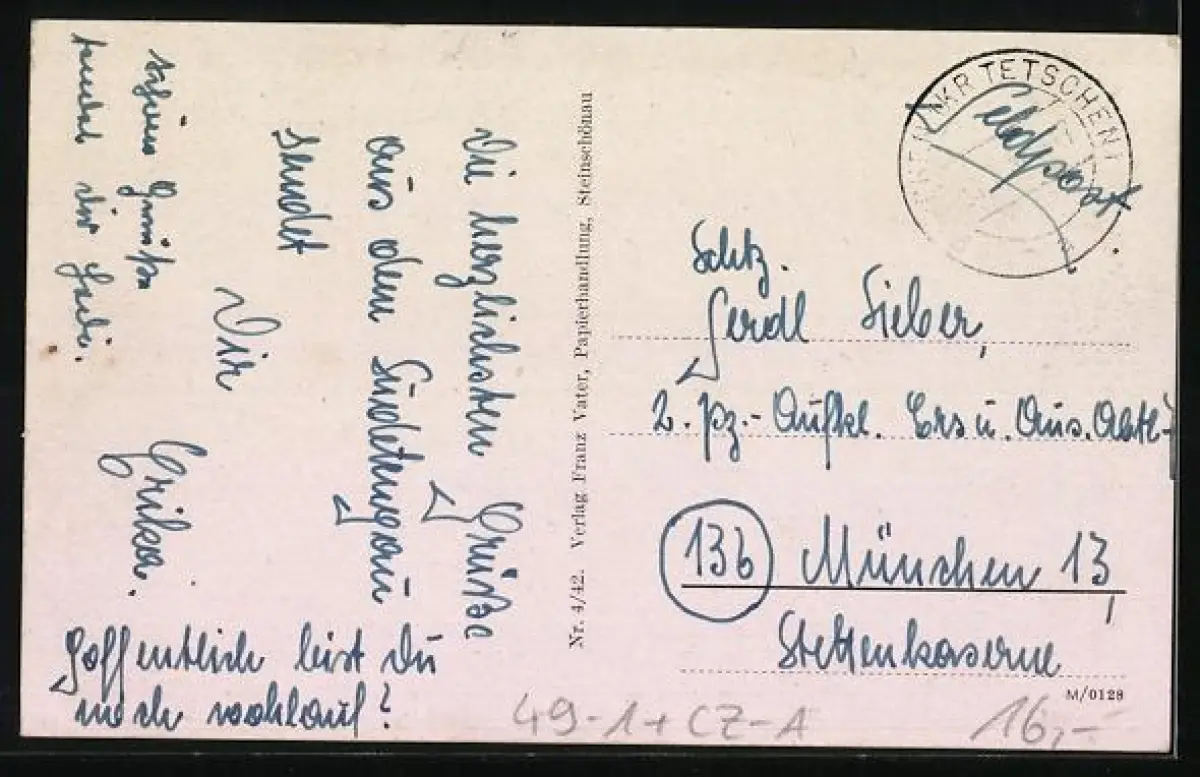 Die herzlichsten Grüße
aus dem Sudetengau
sendet
Dir
Erika.
Hoffentlich bist Du
noch wohlauf?
schöne Grüße
sendet dir
Nr. 4/42. Verlag Franz Vater, Papierhandlung, Steinschönau
TETSCHEN
Feldpost
Schtz.
Gerdl Sieber,
2. Pz.-Aufkl. Ers u. Aus. Abtl.7
13b München 13,
Stettenkaserne
M/0128
49-1+CZ-A
16,-